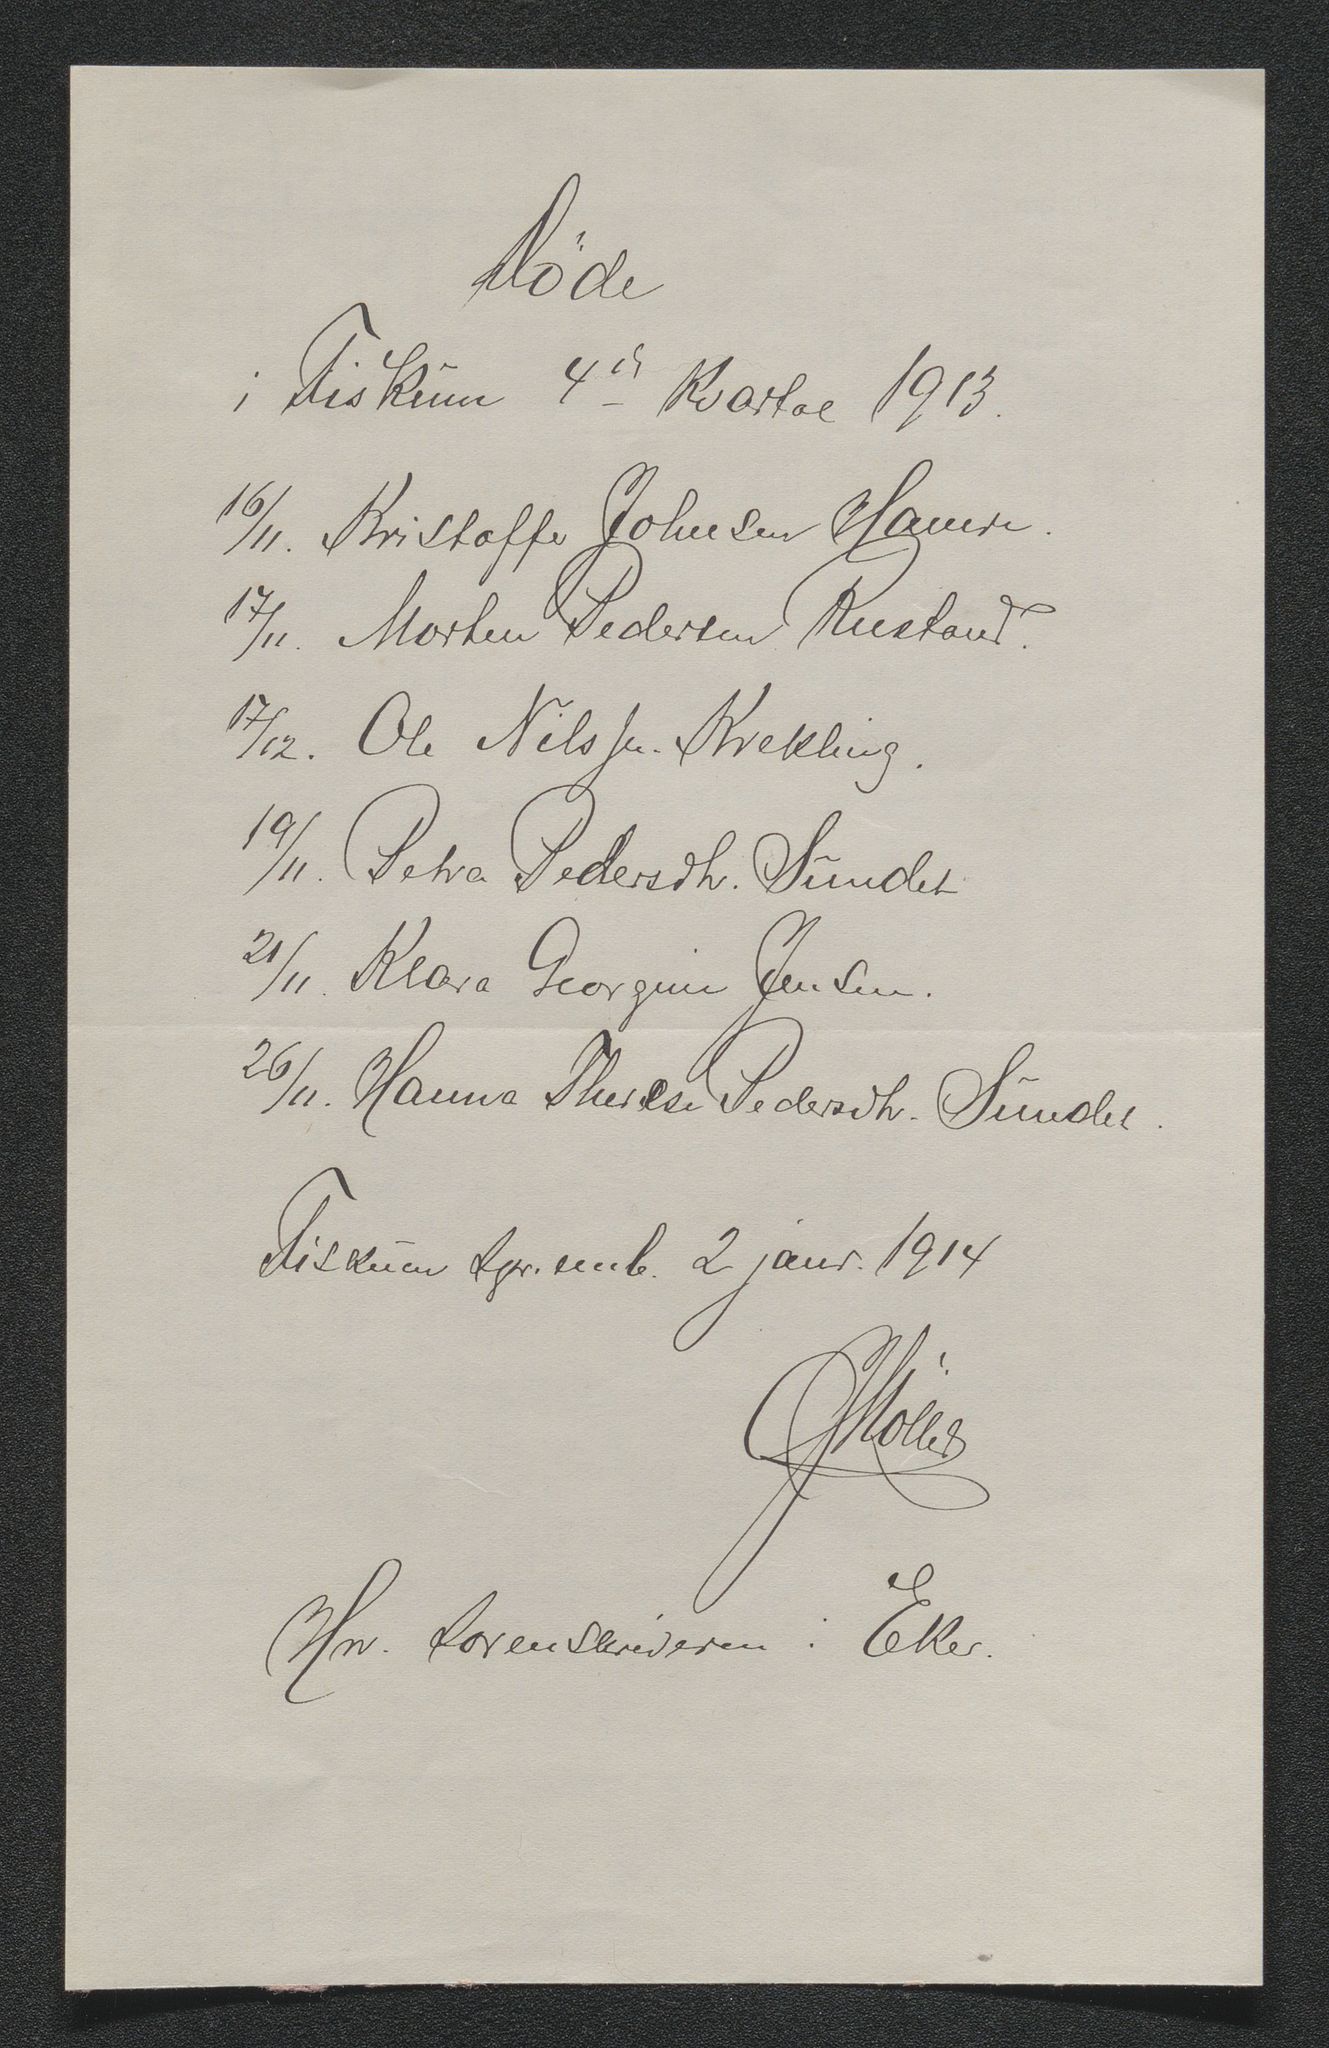 Döde
i Fiskum 4de Kvartal 1913.
16/11. Kristoffer Johnsen Hamre.
17/11. Morten Pedersen Rustand.
17/12. Ole Nilssen. Krekling.
19/11. Petra Pedersdtr. Sundet
21/11. Klara Georgine Jensen.
26/11. Hanna Therese Pedersdtr. Sundet.
Fiskum spr.emb. 2 janr. 1914
Möller
Hr. sorenskriveren i Eker.